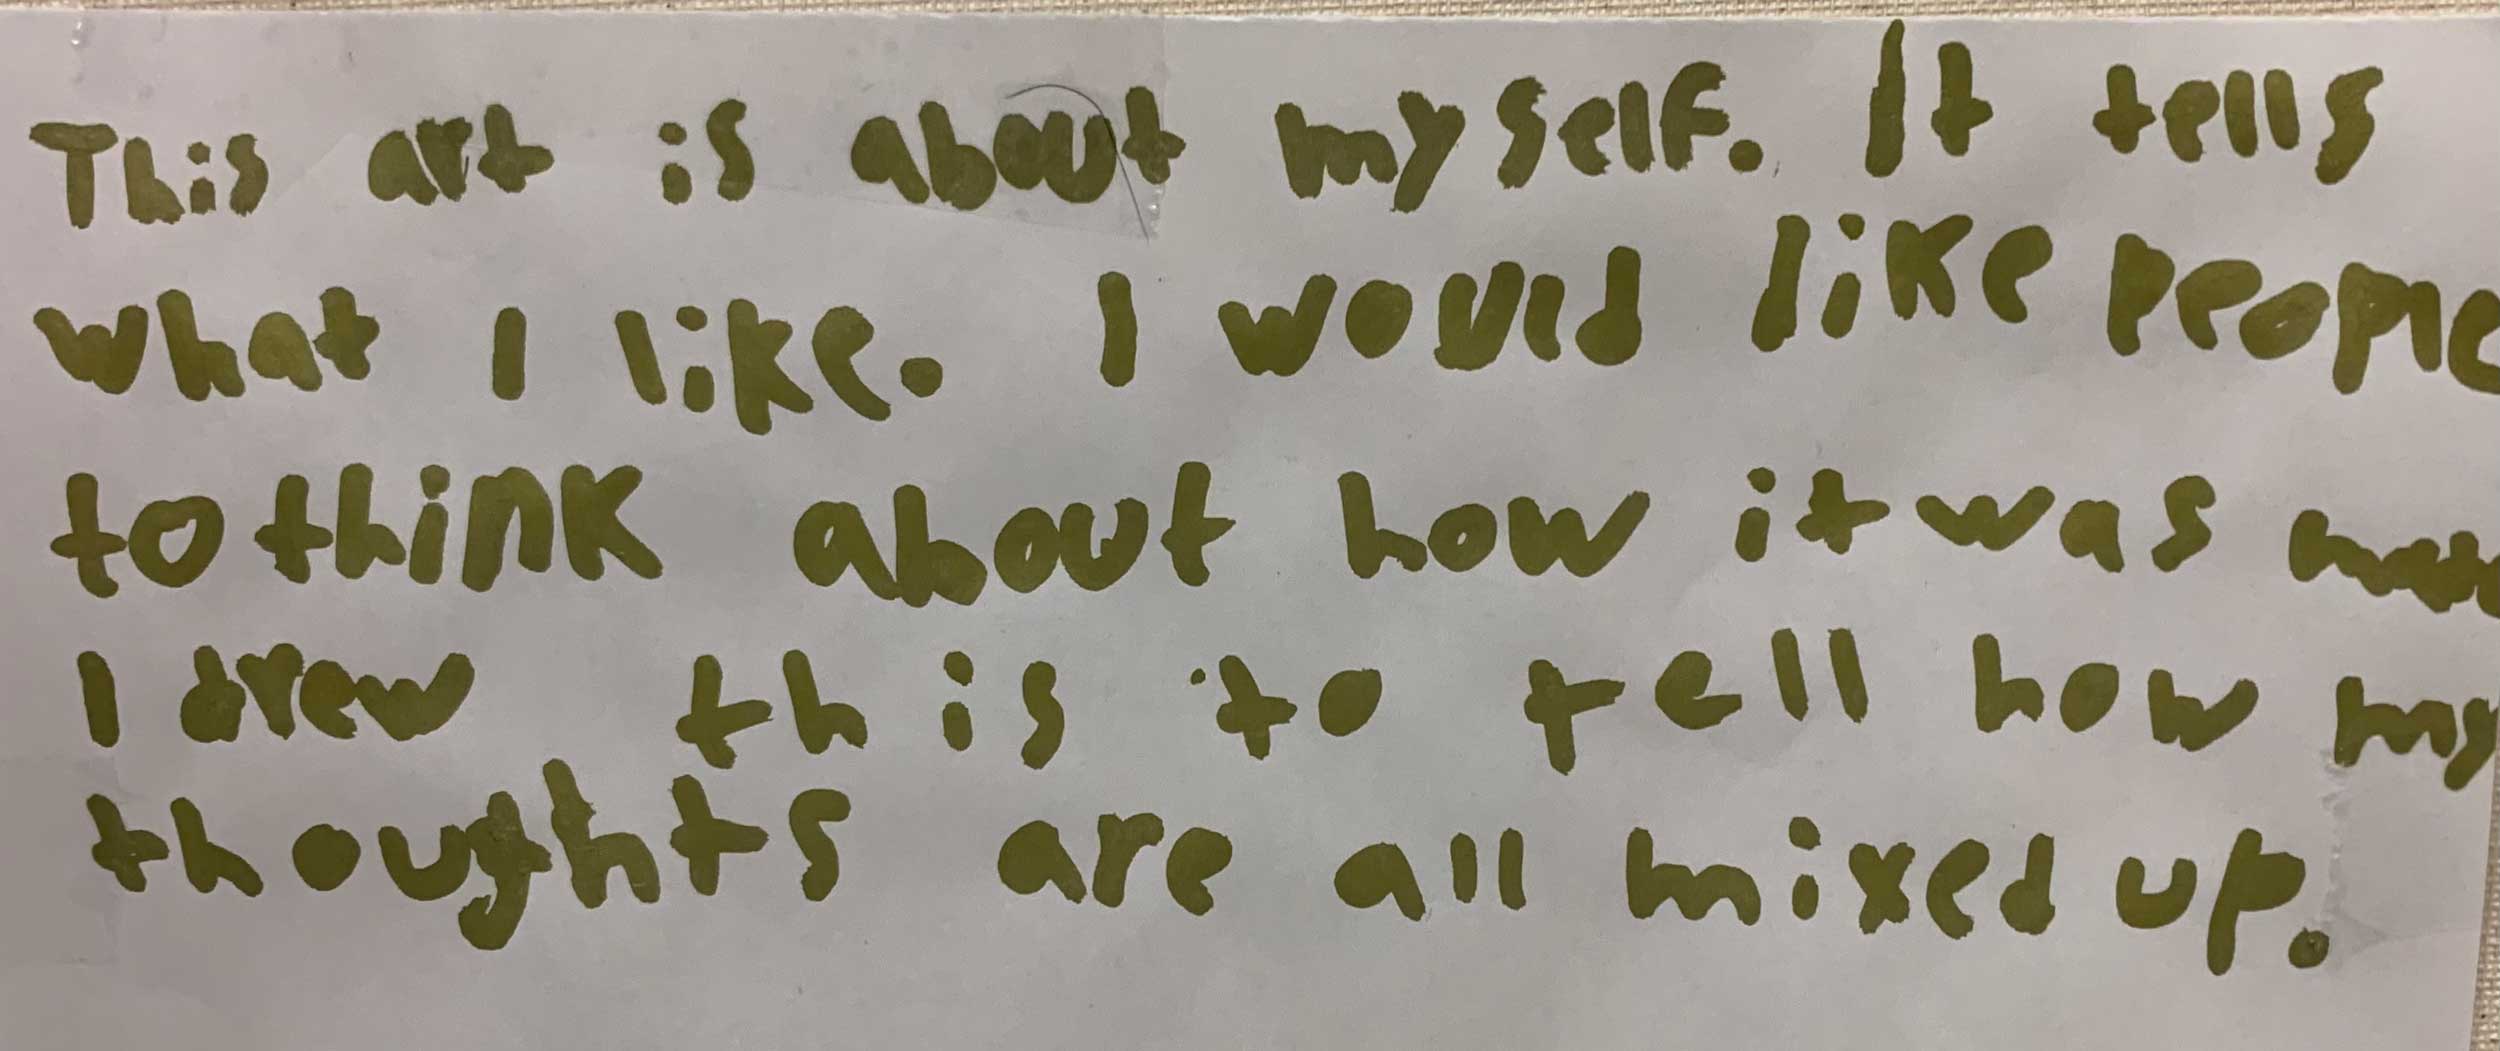 This art is about myself. It tells
what I like. I would like people
to think about how it was
I drew this to tell how my
thoughts are all mixed up.